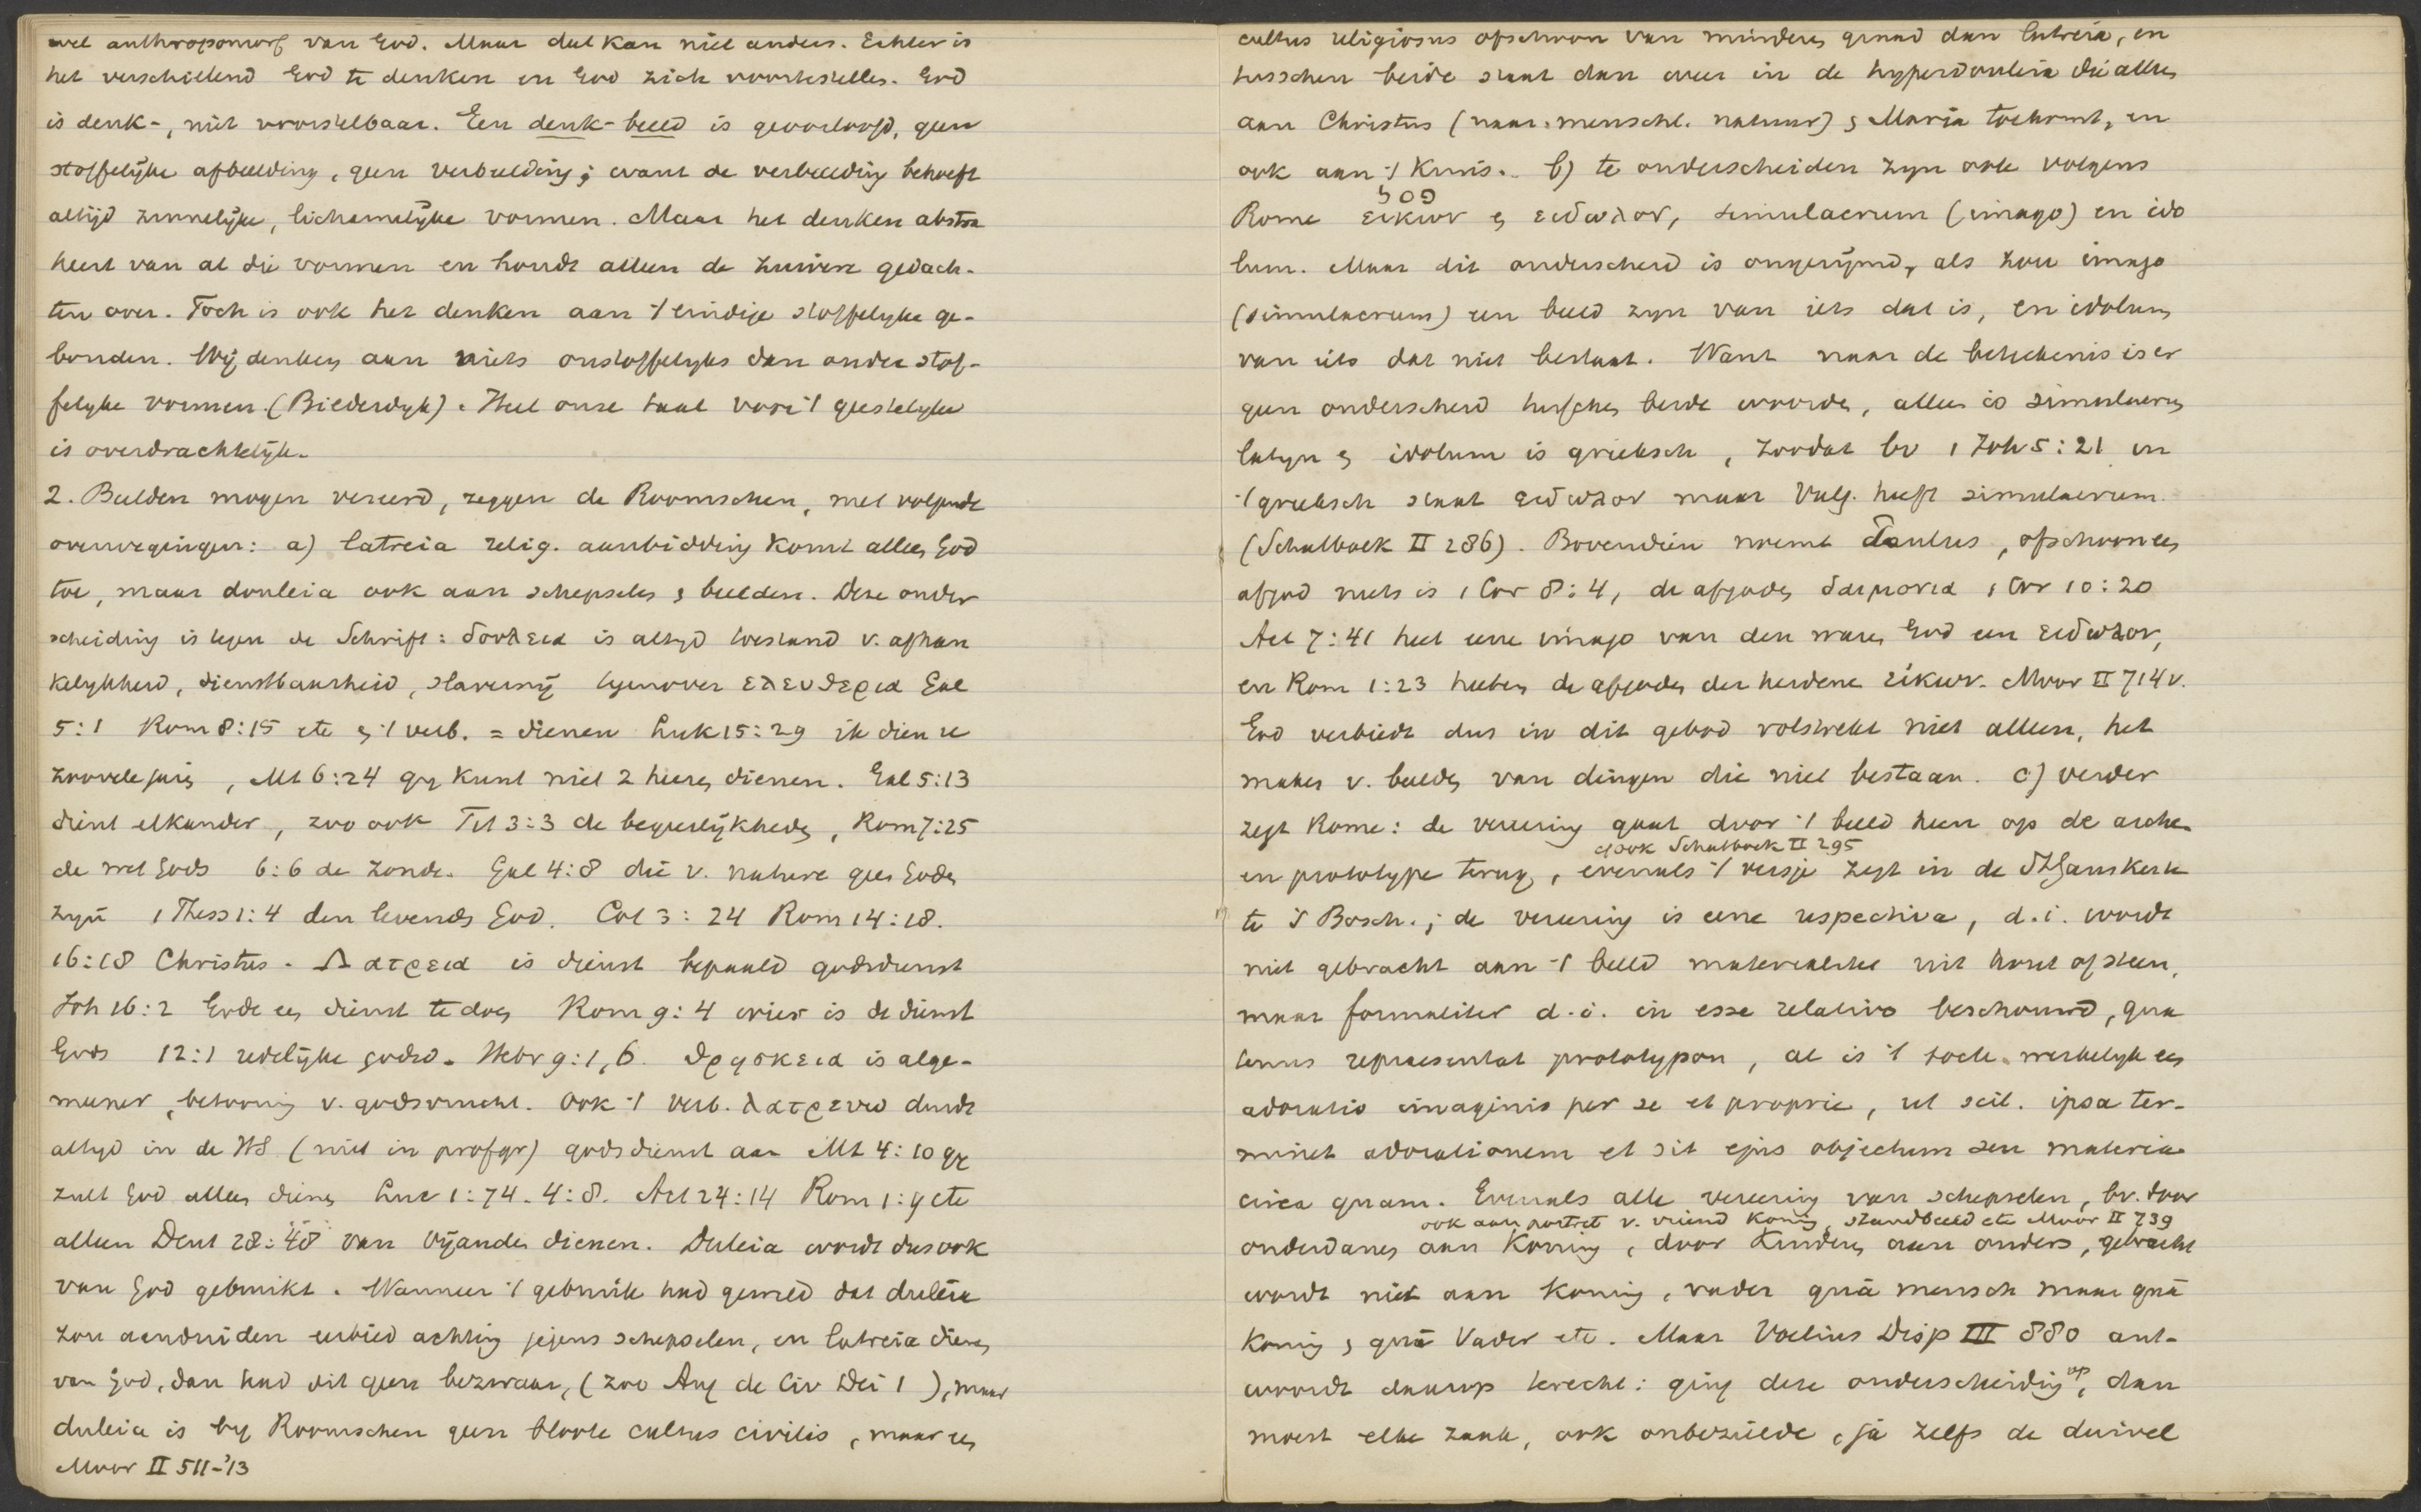 wel anthropomorf van God. Maar dat kan niet anders. Echter is
het verschillend God te denken en God zich voortestellen. God
is denk-, niet voorstelbaar. Een denk-beeld is geoorloofd, geen
stoffelijke afbeelding, geen verbeelding; want de verbeelding behoeft
altijd zinnelijke, lichamelijke vormen. Maar het denken abstra
heert van al die vormen en houdt alleen de zuivere gedach-
ten over. Toch is ook het denken aan 't eindige stoffelyke ge-
bonden. Wij denken aan niets onstoffelyks dan onder stof-
felyke vormen. (Bilderdyk). Heel onze taal voor 't geestelyke
is overdrachtelijk.
2. Beelden mogen vereerd, zeggen de Roomschen, met volgende
overwegingen: a) latreia relig. aanbidding komt alleen God
toe, maar douleia ook aan schepselen & beelden. Deze onder
scheiding is tegen de Schrift: δουλεια is altyd toestand v. afhan
kelykheid, dienstbaarheid, slavernij tegenover ελευθερια Gal
5:1 Rom 8:15 etc & 't verb. = dienen Luk 15:29 ik dien u
zoovele jaren, Mt 6:24 gy kunt niet 2 heeren dienen. Gal 5:13
dient elkander, zoo ook Tit 3:3 de begeerlijkheden, Rom 7:25
de wet Gods 6:6 de zonde. Gal 4:8 die v. nature geen Goden
zyn 1 Thess 1:4 den levenden God. Col 3:24 Rom 14:18.
16:18 Christus. Λατρεια is dienst bepaald godsdienst
Joh 16:2 Gode een dienst te doen Rom 9:4 wier is de dienst
Gods 12:1 redelijke godsd. Hebr 9:1,6. θρησκεια is alge-
meener, betooning v. godsvrucht. Ook 't verb. λατρευω duidt
altyd in de HS (niet in profgr) godsdienst aan Mt 4:10 gy
zult God alleen dienen Luc 1:74. 4:8. Act 24:14 Rom 1:9 etc
alleen Deut 28:48 van vijanden dienen. Duleia wordt dus ook
van God gebruikt. Wanneer 't gebruik had gewild dat duleia
zou aanduiden eerbied achting jegens schepselen, en latreia dienen
van God, dan had dit geen bezwaar, (zoo Aug de Civ Dei 1 ), maar
duleia is by Roomschen geen bloote cultus civilis, maar een
Moor II 511-'13
cultus religiosus ofschoon van minderen graad dan latreia, en
tusschen beide staat dan weer in de hyperdouleia die alleen
aan Christus (naar menschl. natuur) & Maria toekomt, en
ook aan 't Kruis. b) te onderscheiden zyn ook volgens
Rome εικων & ειδωλον, simulacrum (imago) en ido
lum. Maar dit onderscheid is ongerijmd, als zou imago
(simulacrum) een beeld zyn van iets dat is, en idolum
van iets dat niet bestaat. Want naar de beteekenis is er
geen onderscheid tusschen beide woorden, alleen is simulacrum
latyn & idolum is grieksch, zoodat bv 1 Joh 5:21 in
't grieksch staat ειδωλον maar Vulg. heeft simulacrum.
(Schatboek II 286). Bovendien noemt Paulus, ofschoon een
afgod niets is 1 Cor 8:4, de afgoden δαιμονια 1 Cor 10:20
Act 7:41 heet eene imago van den waren God een ειδωλον,
en Rom 1:23 heeten de afgoden der heidenen εικων. Moor II 714 v.
God verbiedt dus in dit gebod volstrekt niet alleen, het
maken v. beelden van dingen die niet bestaan. c) verder
zegt Rome: de vereering gaat door 't beeld heen op de arche-
ook Schatboek II 295
en prototype terug, evenals 't versje zegt in de St Janskerk
te 's Bosch.; de vereering is eene respectiva, d.i. wordt
niet gebracht aan 't beeld materialiter uit hout of steen,
maar formaliter d.i. in esse relativo beschouwd, qua
tenus repraesentat prototypon, al is 't toch werkelyk een
adoratio imaginis per se et proprie, ut scil. ipsa ter-
minet adorationem et sit ejus objectum seu materia
circa quam. Evenals alle vereering van schepselen, bv. door
ook aan portret v. vriend Koning, standbeeld etc Moor II 739
onderdanen aan Koning, door kinderen aan ouders, gebracht
wordt niet aan Koning, vader quâ mensch maar quâ
Koning & quâ Vader etc. Maar Voetius Disp III 880 ant-
woordt daarop terecht: ging deze onderscheiding op, dan
moest elke zaak, ook onbezielde, ja zelfs de duivel